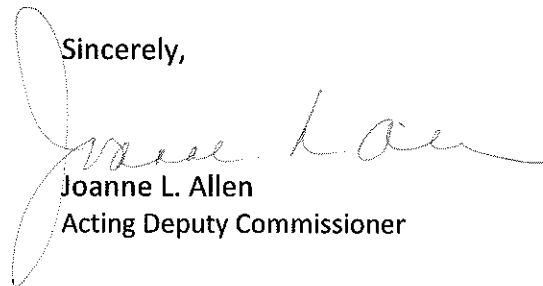 Sincerely,
Joanne L. Allen
Joanne L. Allen
Acting Deputy Commissioner